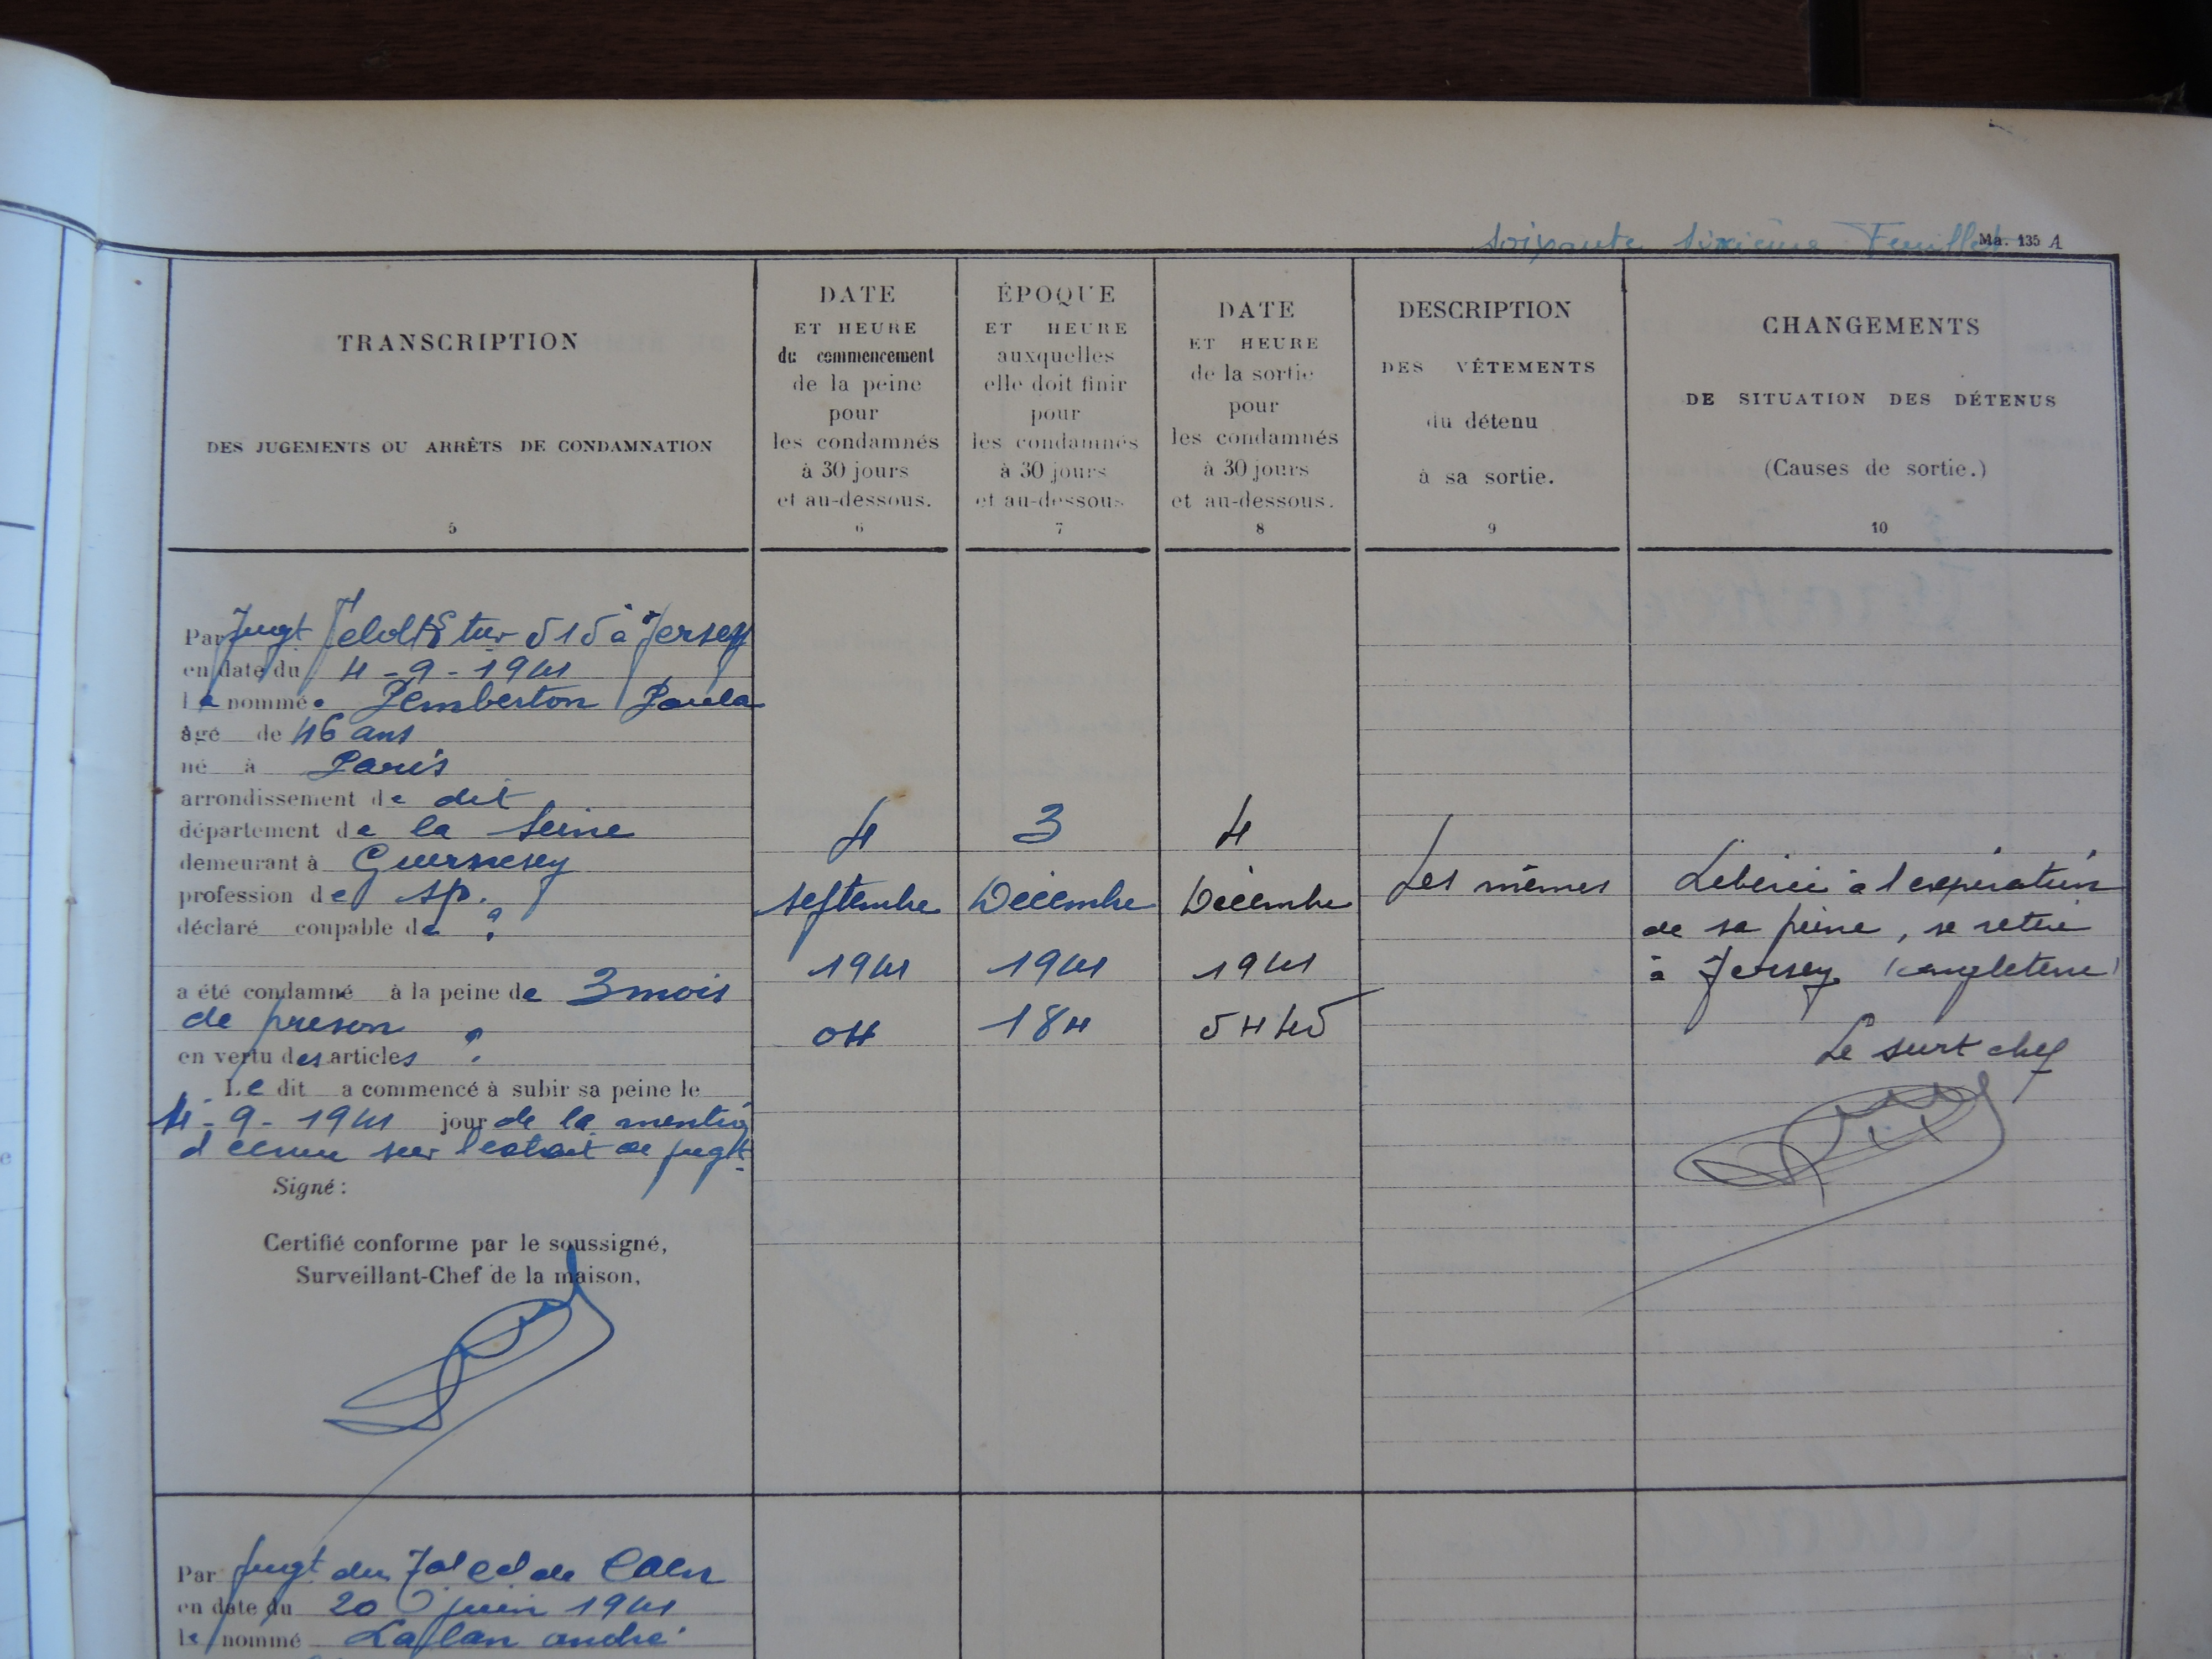 soixante sixième Feuillet Ma. 135 A
TRANSCRIPTION
DES JUGEMENTS OU ARRÊTS DE CONDAMNATION
5
DATE
ET HEURE
du commencement
de la peine
pour
les condamnés
à 30 jours
et au-dessous.
6
ÉPOQUE
ET HEURE
auxquelles
elle doit finir
pour
les condamnés
à 30 jours
et au-dessous
7
DATE
ET HEURE
de la sortie
pour
les condamnés
à 30 jours
et au-dessous.
8
DESCRIPTION
DES VÊTEMENTS
du détenu
à sa sortie.
9
CHANGEMENTS
DE SITUATION DES DÉTENUS
(Causes de sortie.)
10
Par Jugt 515 à Jersey
en date du 4-9-1941
La nommée Pemberton Paula
âgé de 46 ans
né à Paris
arrondissement de dit
département de la Seine
demeurant à Guernesey
profession de sp.
déclaré coupable de ?
a été condamné à la peine de 3 mois
de prison
en vertu des articles ?
Le dit a commencé à subir sa peine le
4-9-1941 jour de la mention
d'écrou sur l'extrait de jugt.
Signé :
Certifié conforme par le soussigné,
Surveillant-Chef de la maison,
4
septembre
1941
0H
3
Décembre
1941
18H
4
Décembre
1941
5H45
Les mêmes
Libérée à l'expiration
de sa peine, se retire
à Jersey (angleterre)
Le survt chef
Par jugt du Tal Cel de Caen
en date du 20 juin 1941
le nommé andré